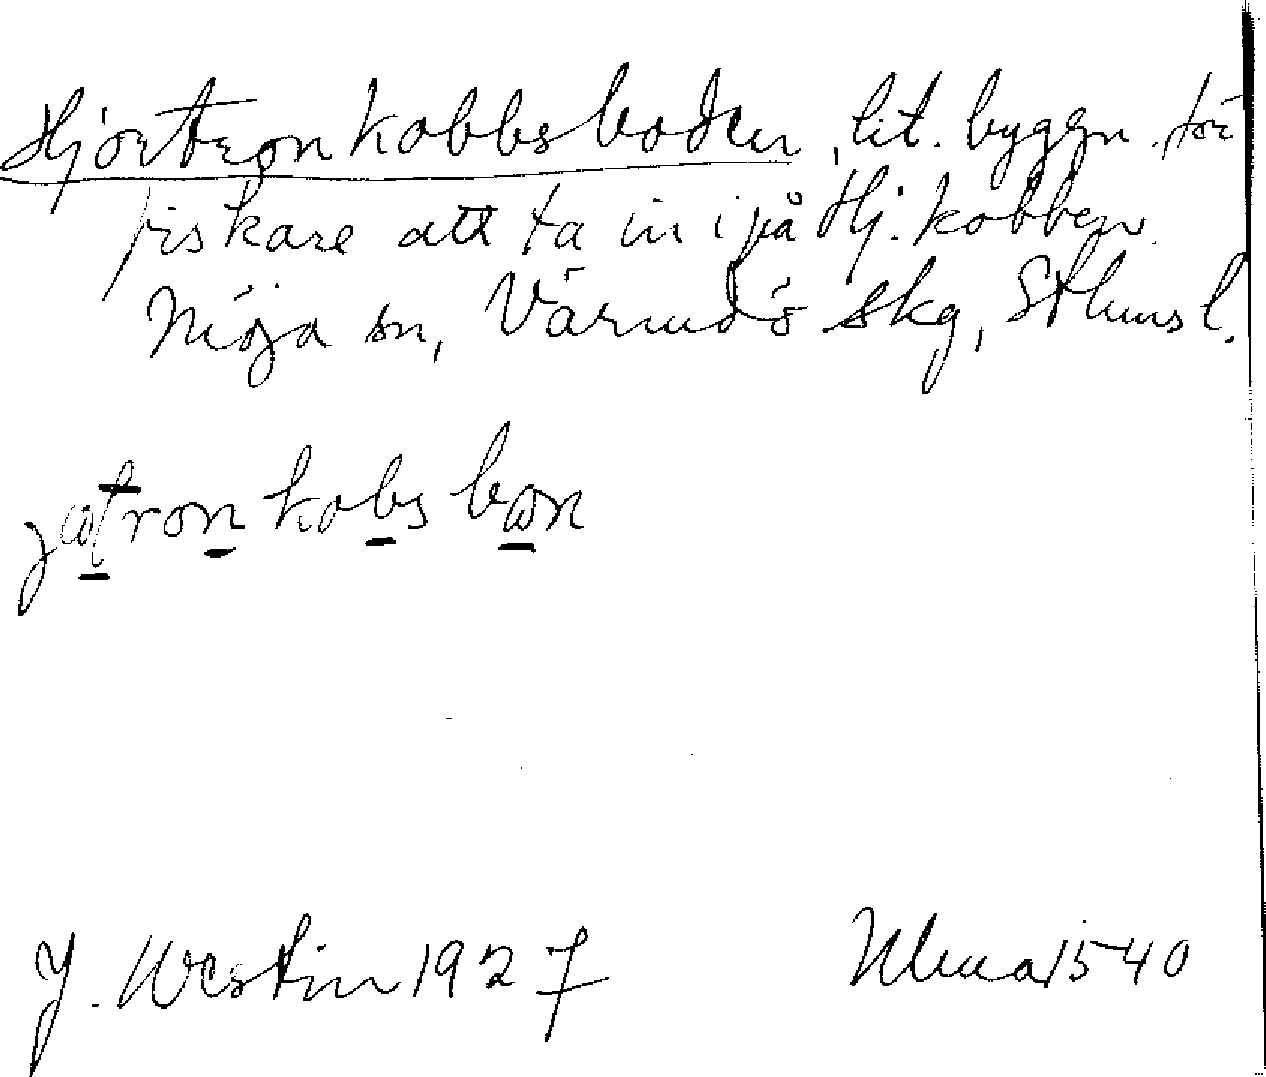 Hjortronkobbsboden, lit. byggn. för
fiskare att ta in i på Hj. kobben.
Möja sn, Värmdö skg, Sthms l.
jotron kobs bon
J. Westin 1927
Ulma 1540